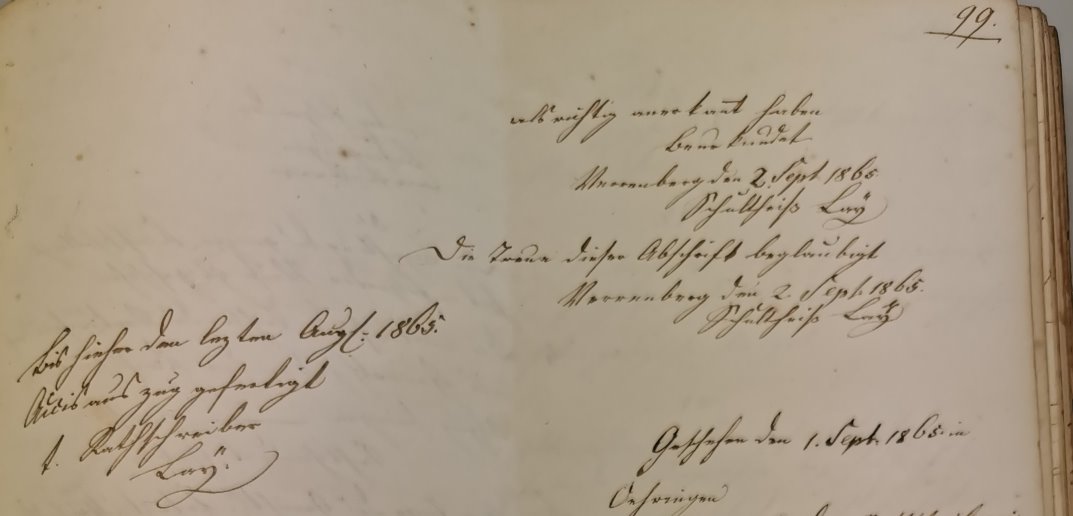 99.
als richtig anerkannt haben
beurkundet
Verrenberg den 2. Sept 1865
Schultheiß Lay
Die Treue dieser Abschrift beglaubigt
Verrenberg den 2 Sept. 1865.
Schultheiß Lay
Bis hieher den lezten Aug. 1865.
auszug gefertigt
t. Rathschreiber
Lay.
Geschehen den 1. Sept. 1865 in
Oehringen